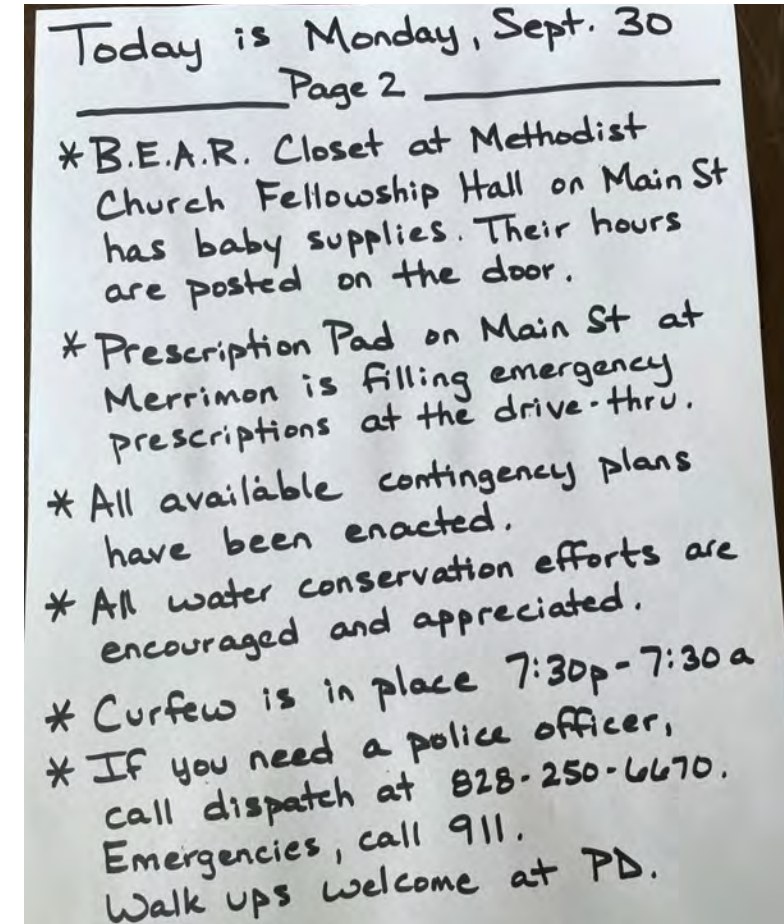 Today is Monday, Sept. 30
Page 2
* B.E.A.R. Closet at Methodist
Church Fellowship Hall on Main St
has baby supplies. Their hours
are posted on the door.
* Prescription Pad on Main St at
Merrimon is filling emergency
prescriptions at the drive-thru.
* All available contingency plans
have been enacted.
* All water conservation efforts are
encouraged and appreciated.
* Curfew is in place 7:30p-7:30a
* If you need a police officer,
call dispatch at 828-250-6670.
Emergencies, call 911.
Walk ups welcome at PD.